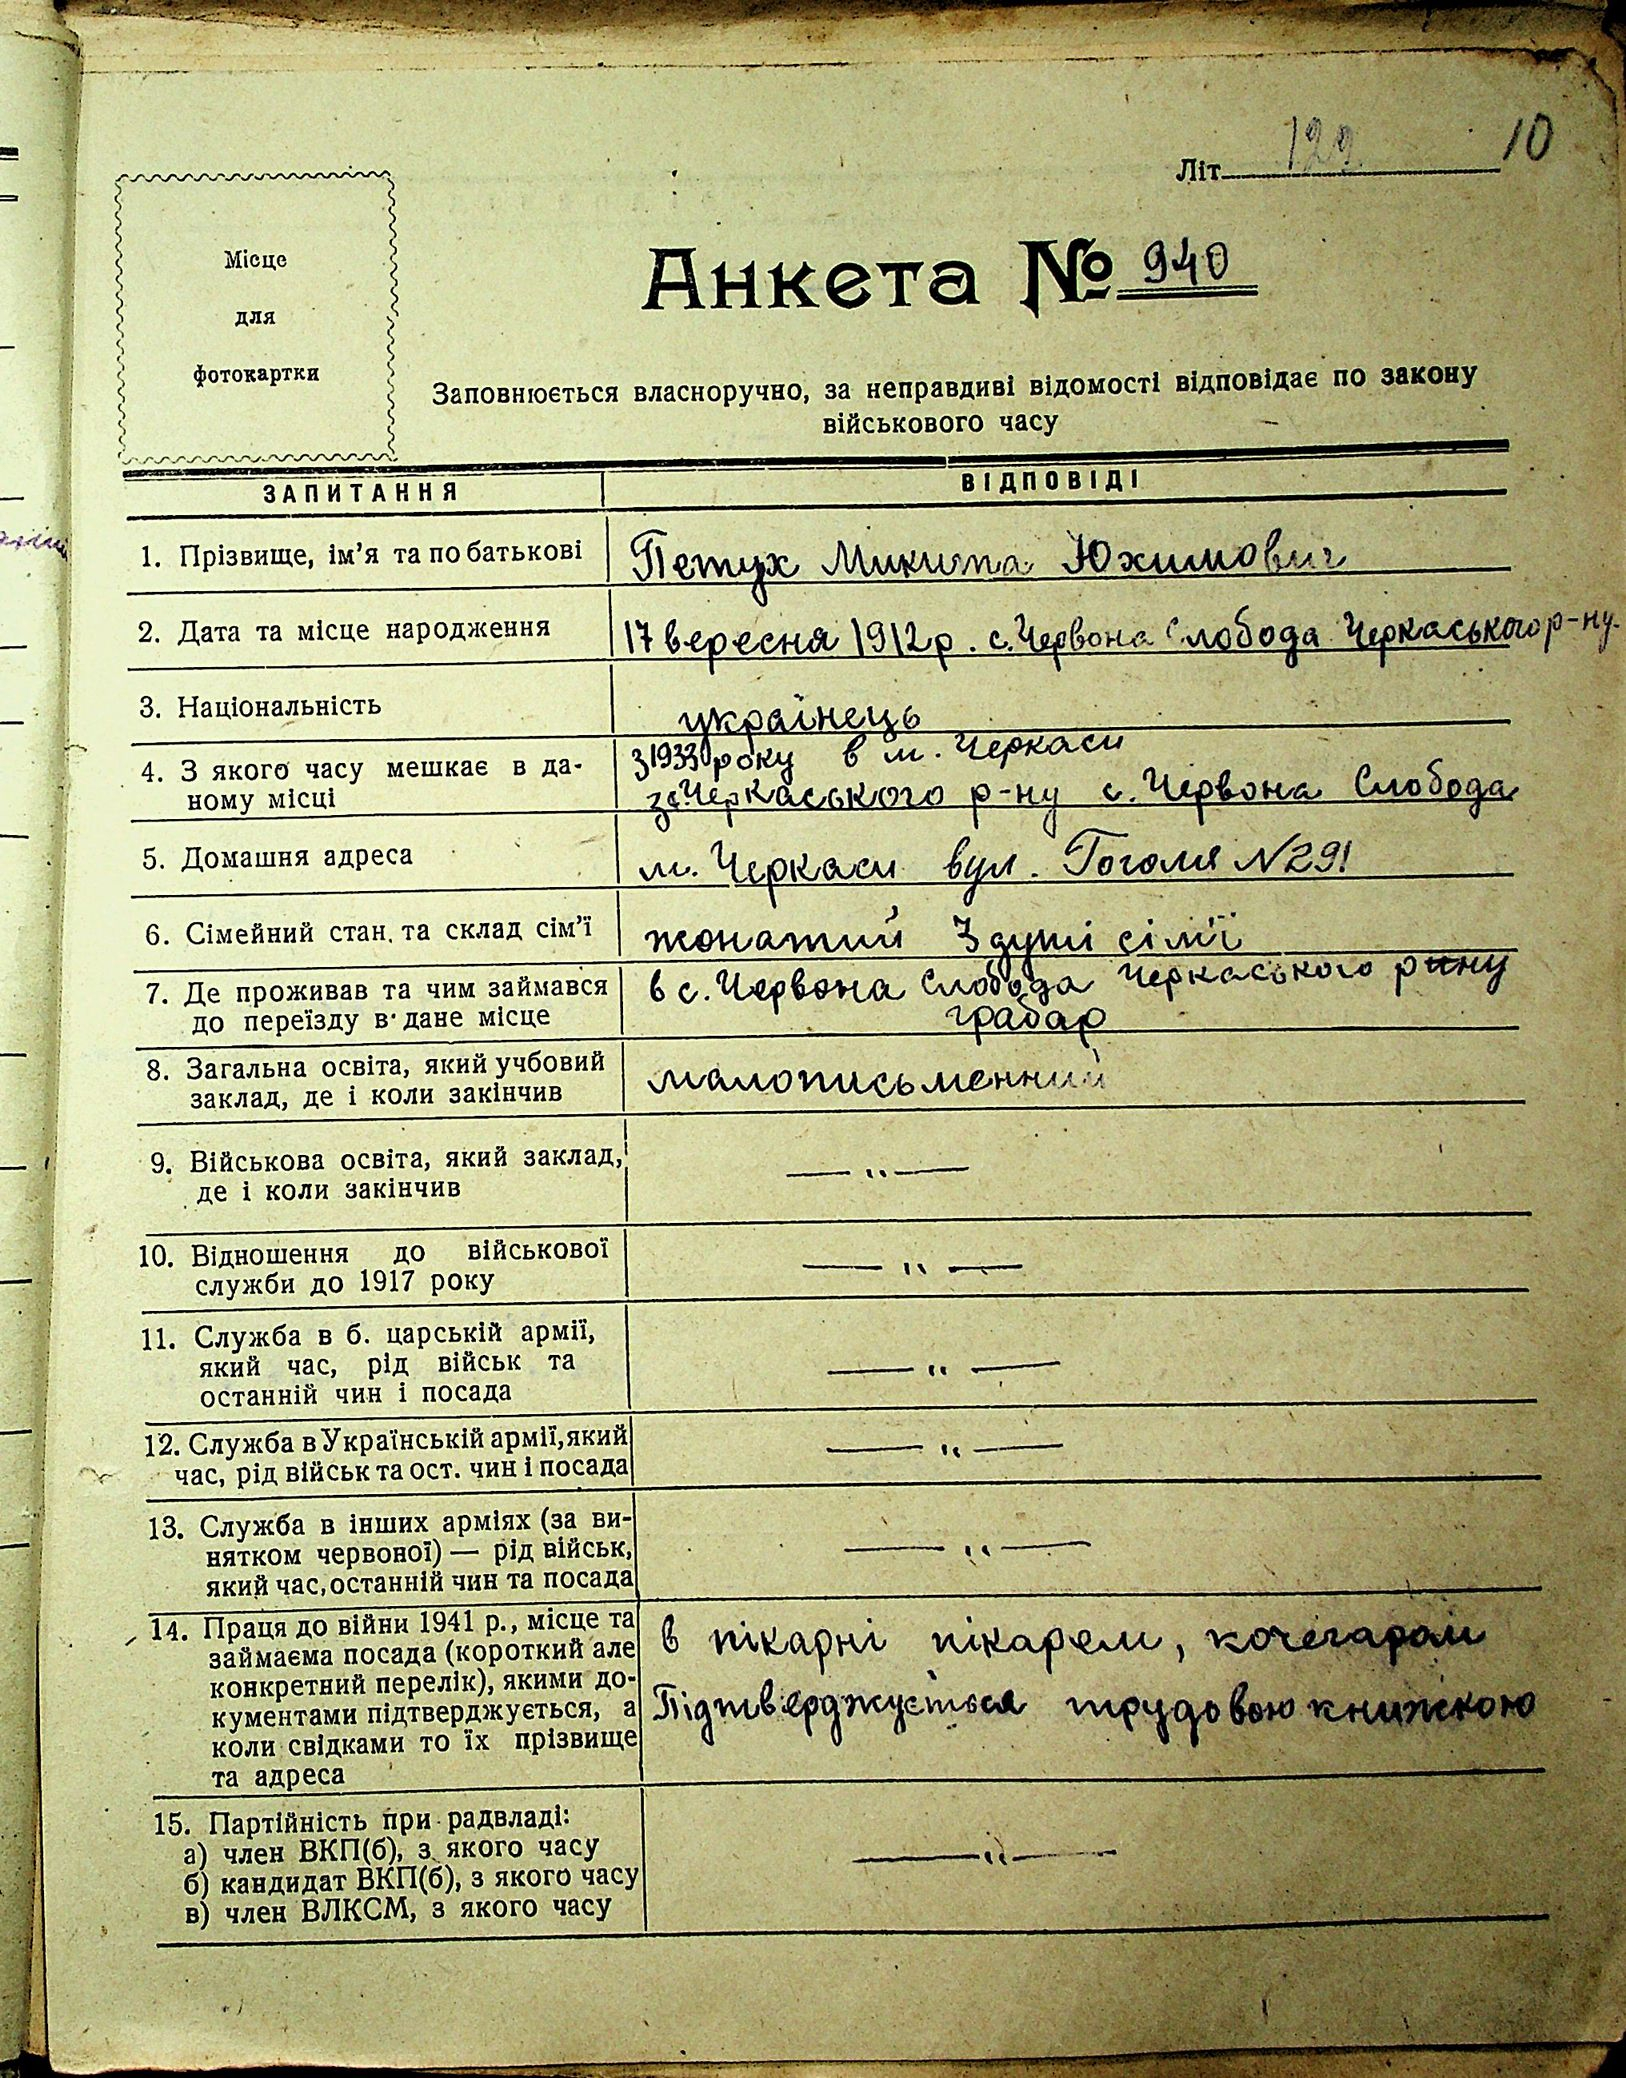 10
Літ 129
Місце
для
фотокартки
Анкета № 940
Заповнюється власноручно, за неправдиві відомості відповідає по закону
військового часу
ЗАПИТАННЯ
ВІДПОВІДІ
1. Прізвище, ім'я та по батькові
Петух Микита Юхимович
2. Дата та місце народження
17 вересня 1912 р. с. Червона Слобода Черкаського р-ну.
3. Національність
українець
4. З якого часу мешкає в да-
ному місці
З 1933 року в м. Черкаси
Черкаського р-ну с. Червона Слобода
5. Домашня адреса
м. Черкаси вул. Гоголя N291
6. Сімейний стан. та склад сім'ї
жонатий 3 душі сім'ї
7. Де проживав та чим займався
до переїзду в дане місце
в с. Червона Слобода Черкаського
грабар
8. Загальна освіта, який учбовий
заклад, де і коли закінчив
малописьменний
9. Військова освіта, який заклад,
де і коли закінчив
— " —
10. Відношення до військової
служби до 1917 року
— " —
11. Служба в б. царській армії,
який час, рід військ та
останній чин і посада
— " —
12. Служба в Українській армії, який
час, рід військ та ост. чин і посада
— " —
13. Служба в інших арміях (за ви-
нятком червоної) — рід військ,
який час, останній чин та посада
— " —
14. Праця до війни 1941 р., місце та
займаєма посада (короткий але
конкретний перелік), якими до-
кументами підтверджується, а
коли свідками то їх прізвище
та адреса
в пікарні пікарем, кочегаром
Підтверджується трудовою книжкою
15. Партійність при радвладі:
а) член ВКП(б), з якого часу
б) кандидат ВКП(б), з якого часу
в) член ВЛКСМ, з якого часу
— " —